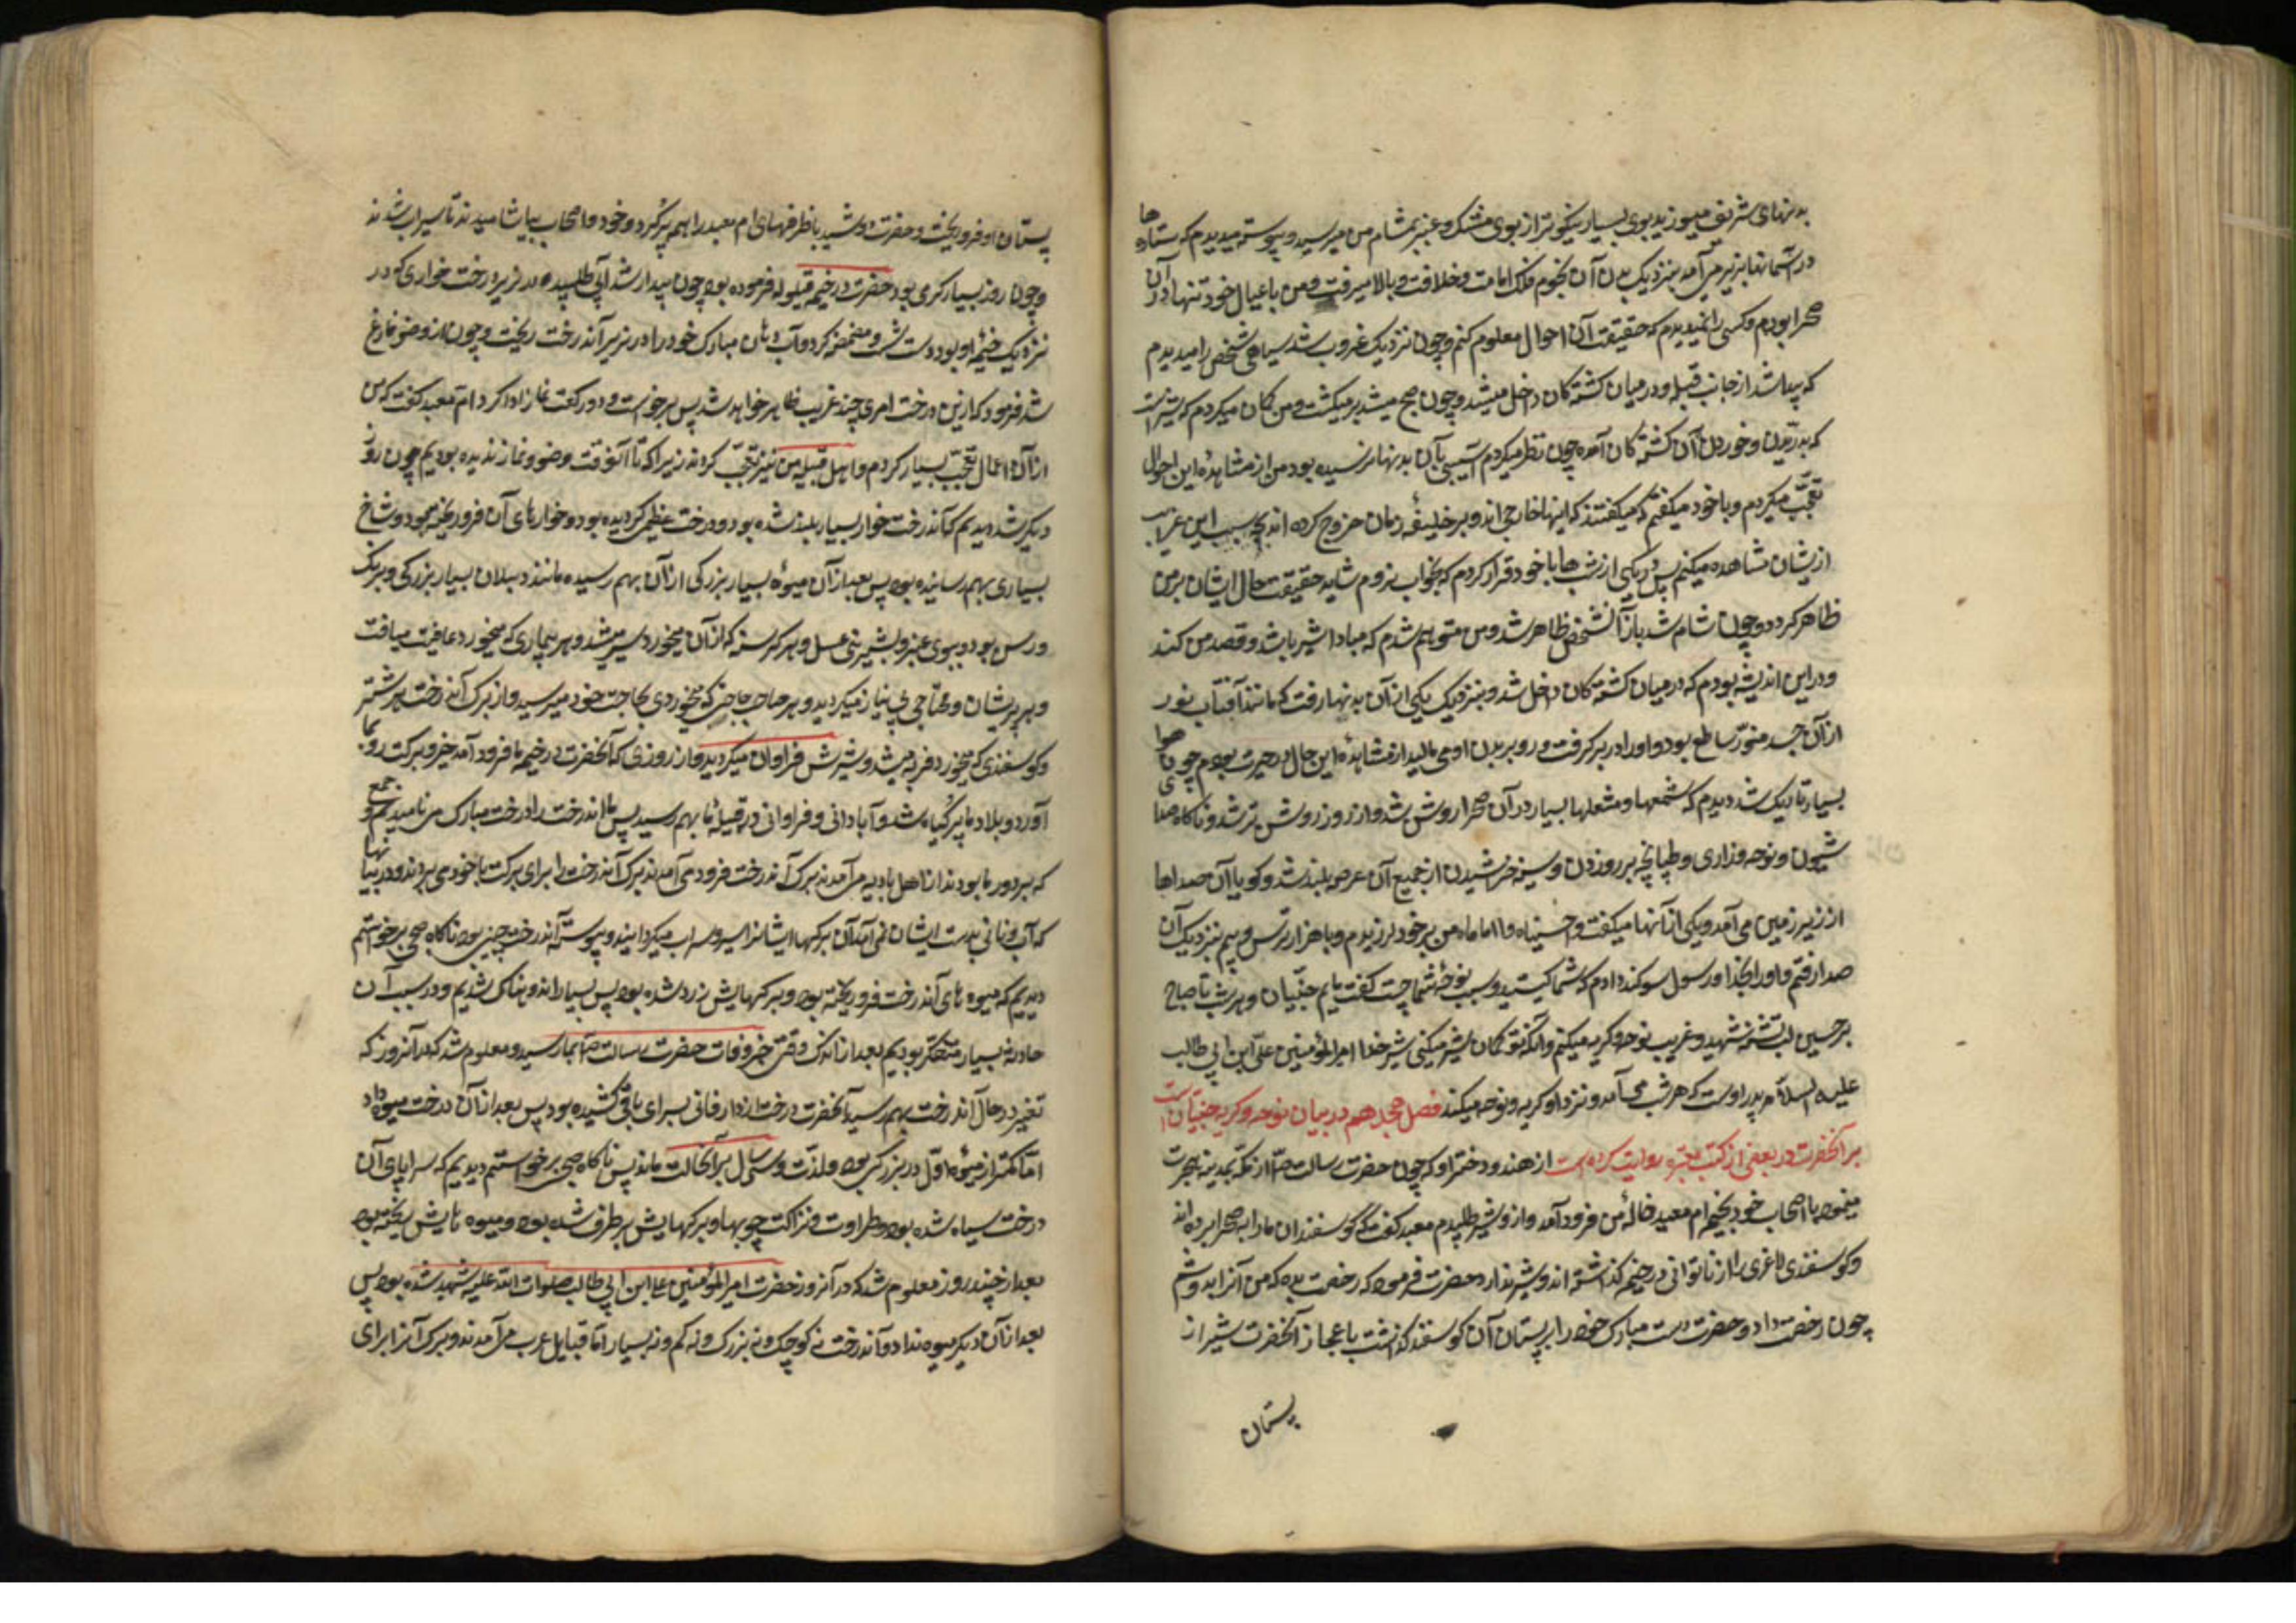 بدنهای شریف میوزید بوی بسیار نیکوتر از بوی مشک و عنبر بمشام من میرسید و پیوسته میدیدم که ستاره‌ها
در آسمانها بزیر می‌آمد بنزدیک بدن آن نجوم فلک امامت و خلافت و بالا میرفت و من با عیال خود تنها در آن
صحرا بودم و کسی را نمیدیدم که حقیقت آن احوال معلوم کنم و چون نزدیک غروب شد سیاهی شخص را میدیدم
که پیدا شد از جانب قبله و در میان کشته‌کان داخل میشد و چون صبح میشد برمیکشت و من کمان میکردم که شیر است
که بدریدن و خوردن آن کشته‌کان آمده چون نظر میکردم آسیبی بآن بدنها نرسیده بود من از مشاهدهٔ این احوال
تعجّب میکردم و با خود میکفتم میکفتند که اینها خارجی‌اند و بر خلیفهٔ زمان خروج کرده‌اند بچه سبب این غرایب
ازیشان مشاهده میکنم پس در یکی از شب‌ها با خود قرار کردم که بخواب نروم شاید حقیقت حال ایشان بر من
ظاهر کردد و چون شام شد باز آنشخص ظاهر شد و من متوهم شدم که مبادا شیر باشد و قصد من کند
و در این اندیشه بودم که در میان کشته‌کان داخل شد و بنزدیک یکی از آن بدنها رفت که مانند آفتاب نور
از آن جسد منوّر ساطع بود و او را در بر کرفت و رو بر بدن او می مالید از مشاهدهٔ این حال در حیرت بودم چون هوا
بسیار تاریک شد دیدم که شمعها و مشعلها بسیار در آن صحرا روشن شد و از روز روشن‌تر شد و ناکاه صدای
شیون و نوحه و زاری و طپانچه بر رو زدن و سینه خراشیدن از جمیع آن عرصه بلند شد و کویا آن صداها
از زیر زمین می‌آمد و یکی از آنها میکفت وا حسیناه وا اماماه من بر خود لرزیدم و با هزار ترس و بیم بنزدیک آن
صدا رفتم و او را بخدا و رسول سوکند دادم که شما کیستید و سبب نوحهٔ شما چیست کفت مایم جنّیان و هر شب تا صباح
بر حسین لب تشنه شهید و غریب نوحه و کریه میکنیم و آنکه تو کمان شیر میکنی شیر خدا امیر المؤمنین علیّ ابن ابی طالب
علیه السلام پدر اوست که هر شب می‌آمد و نزد او کریه و نوحه میکند فصل هجدهم در بیان نوحه و کریهٔ جنیان است
بر آنحضرت در بعضی از کتب معتبره روایت کرده است از هند و دختر او که چون حضرت رسالت ص از مکّه بمدینه هجرت
مینمود با اصحاب خود بخیمه ام معبد خالهٔ من فرود آمد و ازو شیر طلبیدم معبد کفت که کوسفندان ما را به صحرا برده‌اند
و کوسفندی لاغری را از ناتوانی در خیمه کذاشته‌اند و شیر ندارد حضرت فرمود که رخصت بده که من آنرا بدوشم
چون رخصت داد و حضرت دست مبارک خود را بر پستان آن کوسفند کذاشت باعجاز آنحضرت شیر از
پستان
پستان او فرو ریخت و حضرت دوشید با ظرفهای ام معبد را همه پر کرد و خود و اصحاب بیاشامیدند تا سیراب شدند
و چون روز بسیار کرمی بود حضرت در خیمه قیلوله فرموده بود چون بیدار شد آب طلبیده در زیر درخت خواری که در
نزدیک خیمهٔ او بود دست شست و مضمضه کرد و آب دهان مبارک خود را در زیر آندرخت ریخت و چون از وضو فارغ
شد فرمود که ازین درخت امری چند غریب ظاهر خواهد شد پس برخواست و دو رکعت نماز ادا کرد ام معبد کفت که من
از آن اعمال تعجّب بسیار کردم و اهل قبیله من نیز تعجّب کردند زیرا که تا آنوقت وضو و نماز ندیده بودیم چون روز
دیکر شد دیدیم که آندرخت خوار بسیار بلند شده بود و درخت عظیمی کردیده بود و خوارهای آن فرو ریخته بود و شاخ
بسیاری بهم رسانیده بود پس بعد از آن میوهٔ بسیار بزرکی از آن بهم رسیده مانند دنبلان بسیار بزرکی و برنک
ورس بود و ببوی عنبر و بشیرینی عسل و هر کرسنه که از آن میخورد سیر میشد و هر بیماری که میخورد عافیت میافت
و هر پریشان و محتاجی بی‌نیاز میکردید و هر صاحب حاجتی که میخوردی بحاجت خود میرسید و از برک آندرخت هر شتر
و کوسفندی که میخورد فربه میشد و شیرش فراوان میکردید و از روزی که آنحضرت در خیمه ما فرود آمد خیر و برکت رو بما
آورد و بلاد ما پر کیاه شد و آبادانی و فراوانی در قبیلهٔ ما بهم رسید پس ما اندرخت را درخت مبارک می نامیدیم و جمع
که بر دور ما بودند از اهل بادیه می‌آمدند برک آندرخت فرود می‌آمدند برک آندرخت را برای برکت با خود می بردند و در بیابانها
که آب و نانی بدست ایشان نمی‌آمد آن برکها ایشانرا سیر و سیراب میکردانید و پیوسته آندرخت چنین بود تا کاه صبحی برخواستیم
دیدیم که میوه‌های آندرخت فرو ریخته بود و برکهایش زرد شده بود پس بسیار اندوهناک شدیم و در سبب آن
حادثه بسیار متفکّر بودیم بعد از اندک وقتی خبر وفات حضرت رسالت ص بما رسید و معلوم شد که در آنروز که
تغیر در حال آندرخت بهم رسید آنحضرت رخت از دار فانی بسرای باقی کشیده بود پس بعد از آن درخت میوه داد
امّا کمتر از میوهٔ اوّل در بزرکی بود و لذّت و سی سال بر آنحالت ماند پس ناکاه صبحی برخواستیم دیدیم که سراپای آن
درخت سیاه شده بود و طراوت و نزاکت چوبها و برکهایش برطرف شده بود و میوه‌هایش ریخته بود
بعد از چند روز معلوم شد که در آنروز حضرت امیر المؤمنین علی ابن ابی طالب صلوات الله علیه شهید شده بود پس
بعد از آن دیکر میوه نداد و آندرخت نه کوچک و نه بزرک و نه کم و نه بسیار امّا قبایل عرب می‌آمدند و برک آنرا برای